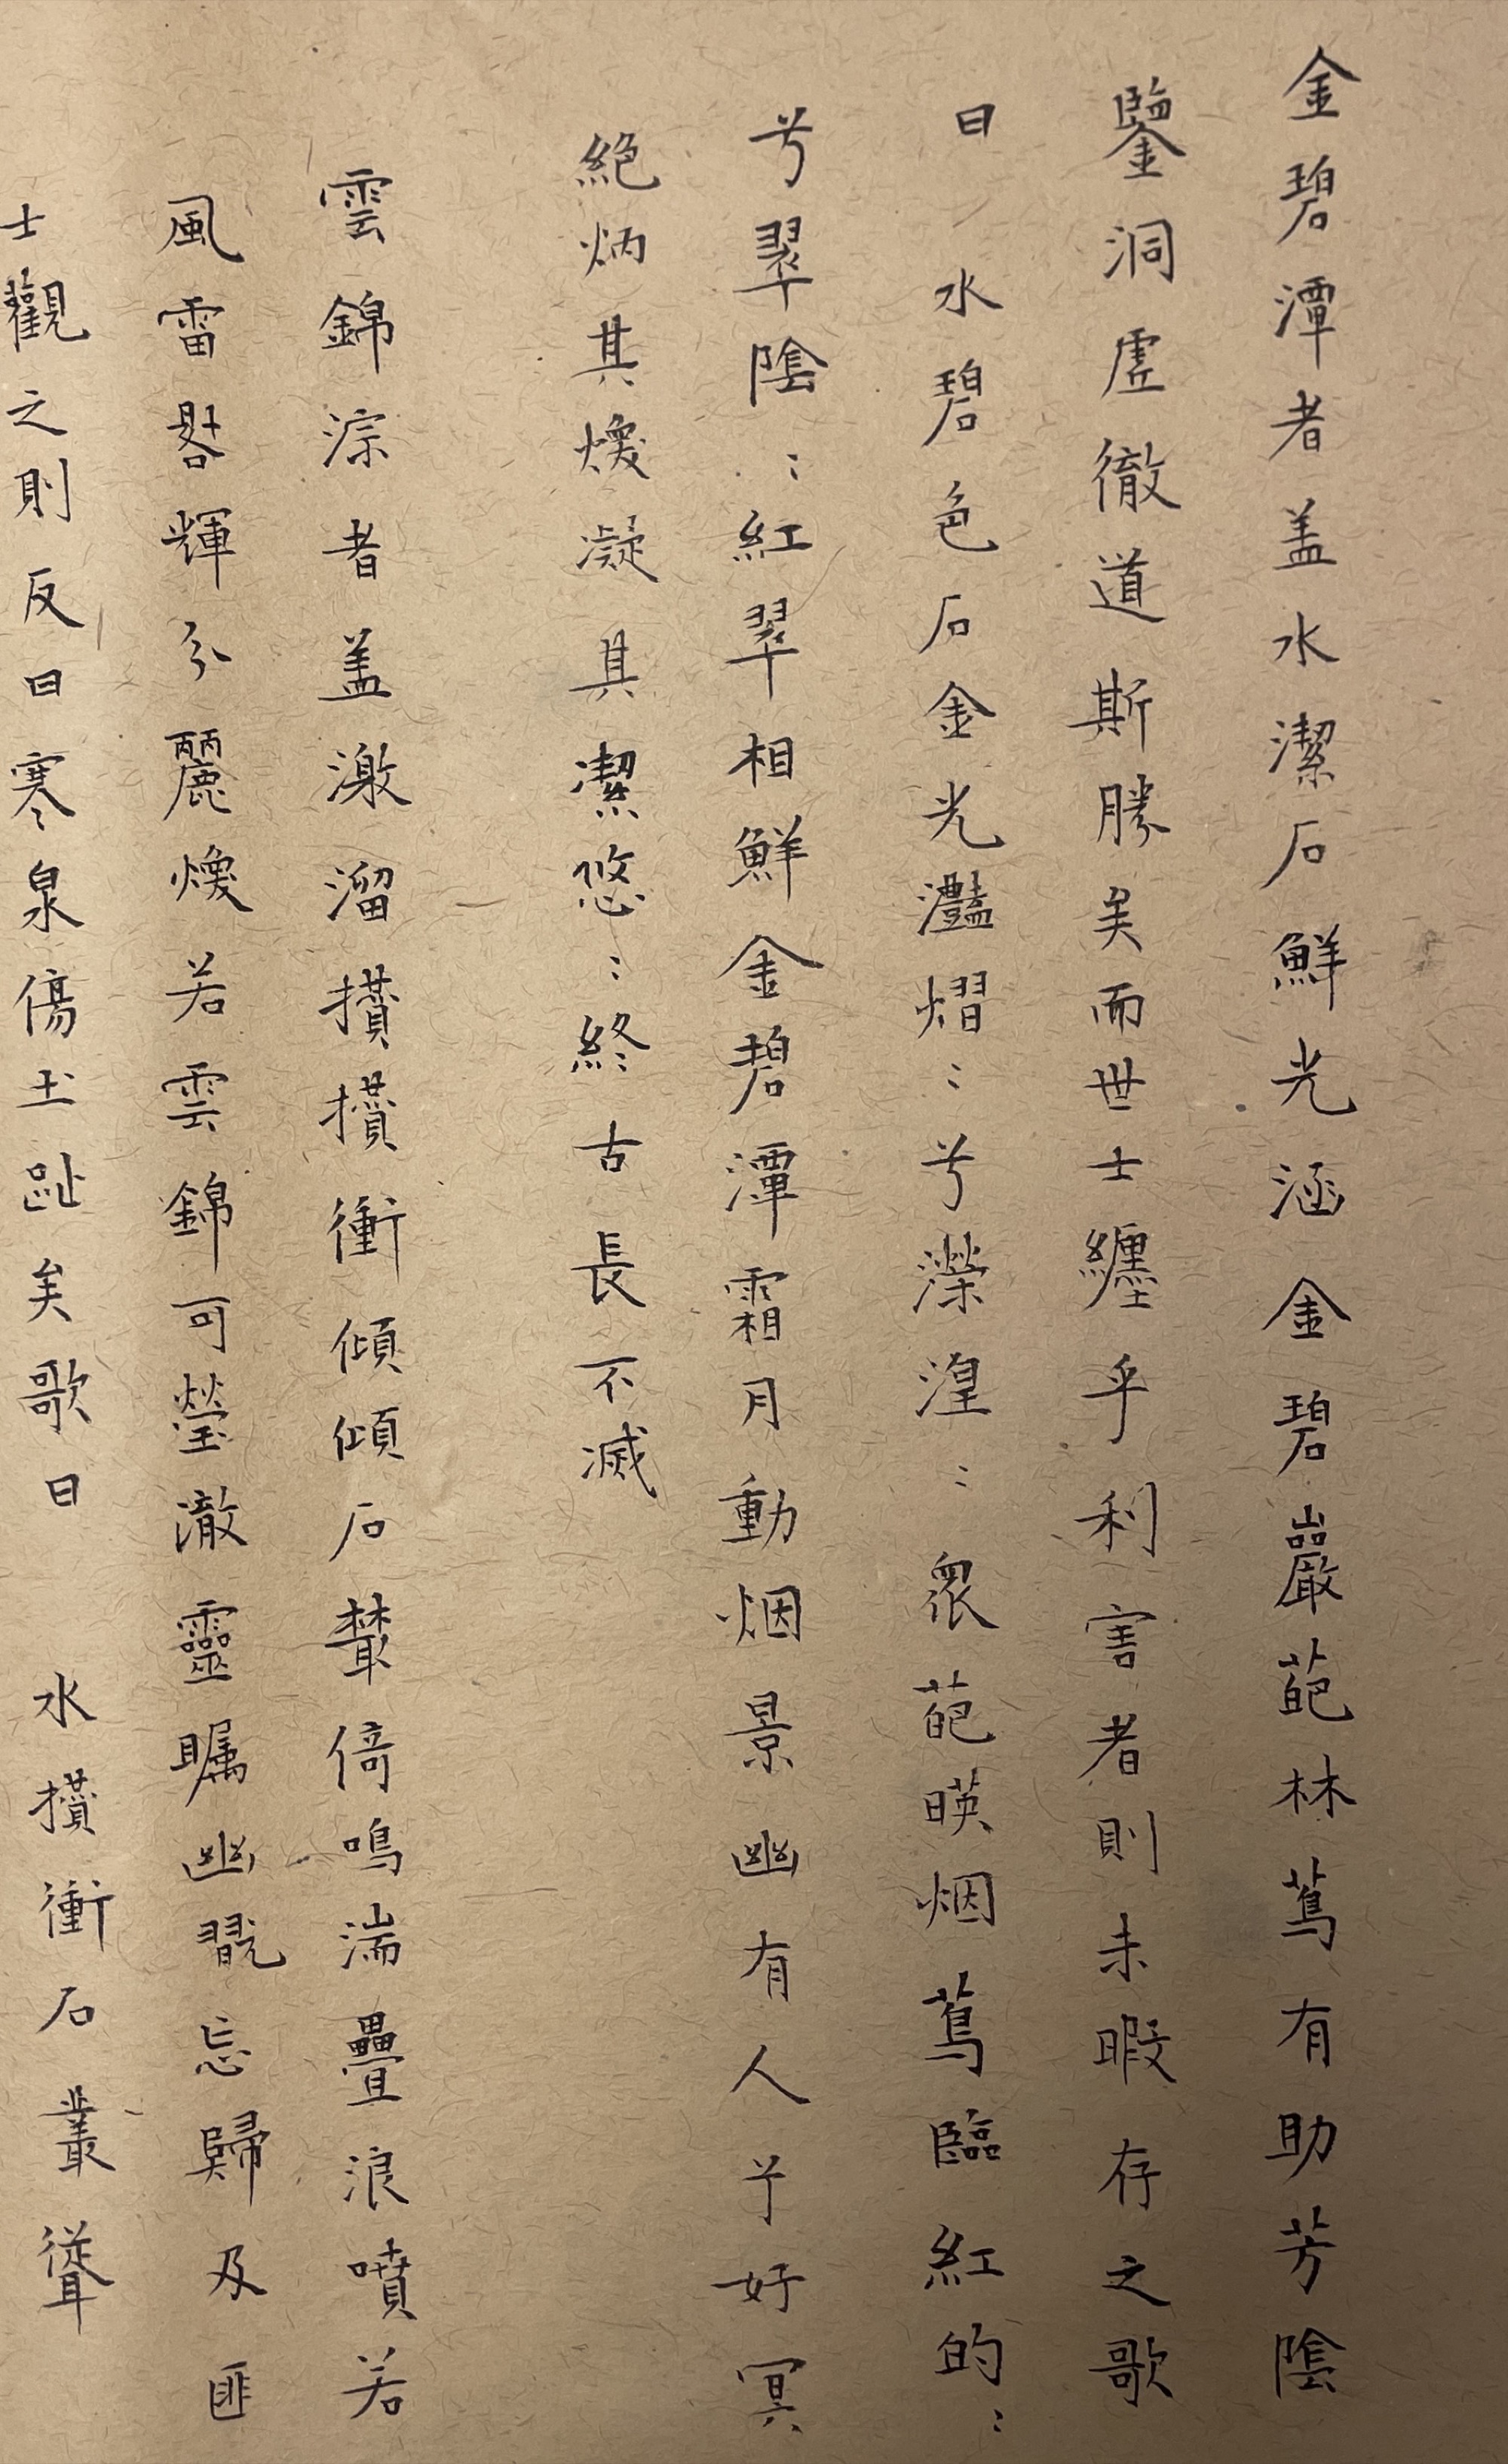 金碧潭者盖水潔石鮮光涵金碧巖葩林蔦有助芳陰
鑒洞虚徹道斯勝矣而世士纏乎利害者則未暇存之歌
曰 水碧色石金光灩熠：兮濴湟：衆葩暎烟蔦臨紅的：
兮翠陰：紅翠相鮮金碧潭霜月動烟景幽有人兮好冥
絶炳其煥凝其潔悠：終古長不滅
雲錦淙者盖激溜攢攢衝傾傾石樷倚鳴湍疊浪噴若
風雷輝分麗煥若雲錦可瑩澈靈矚幽翫忘歸及匪
士觀之則反曰寒泉傷玉趾矣歌曰 水攢衝石叢聳